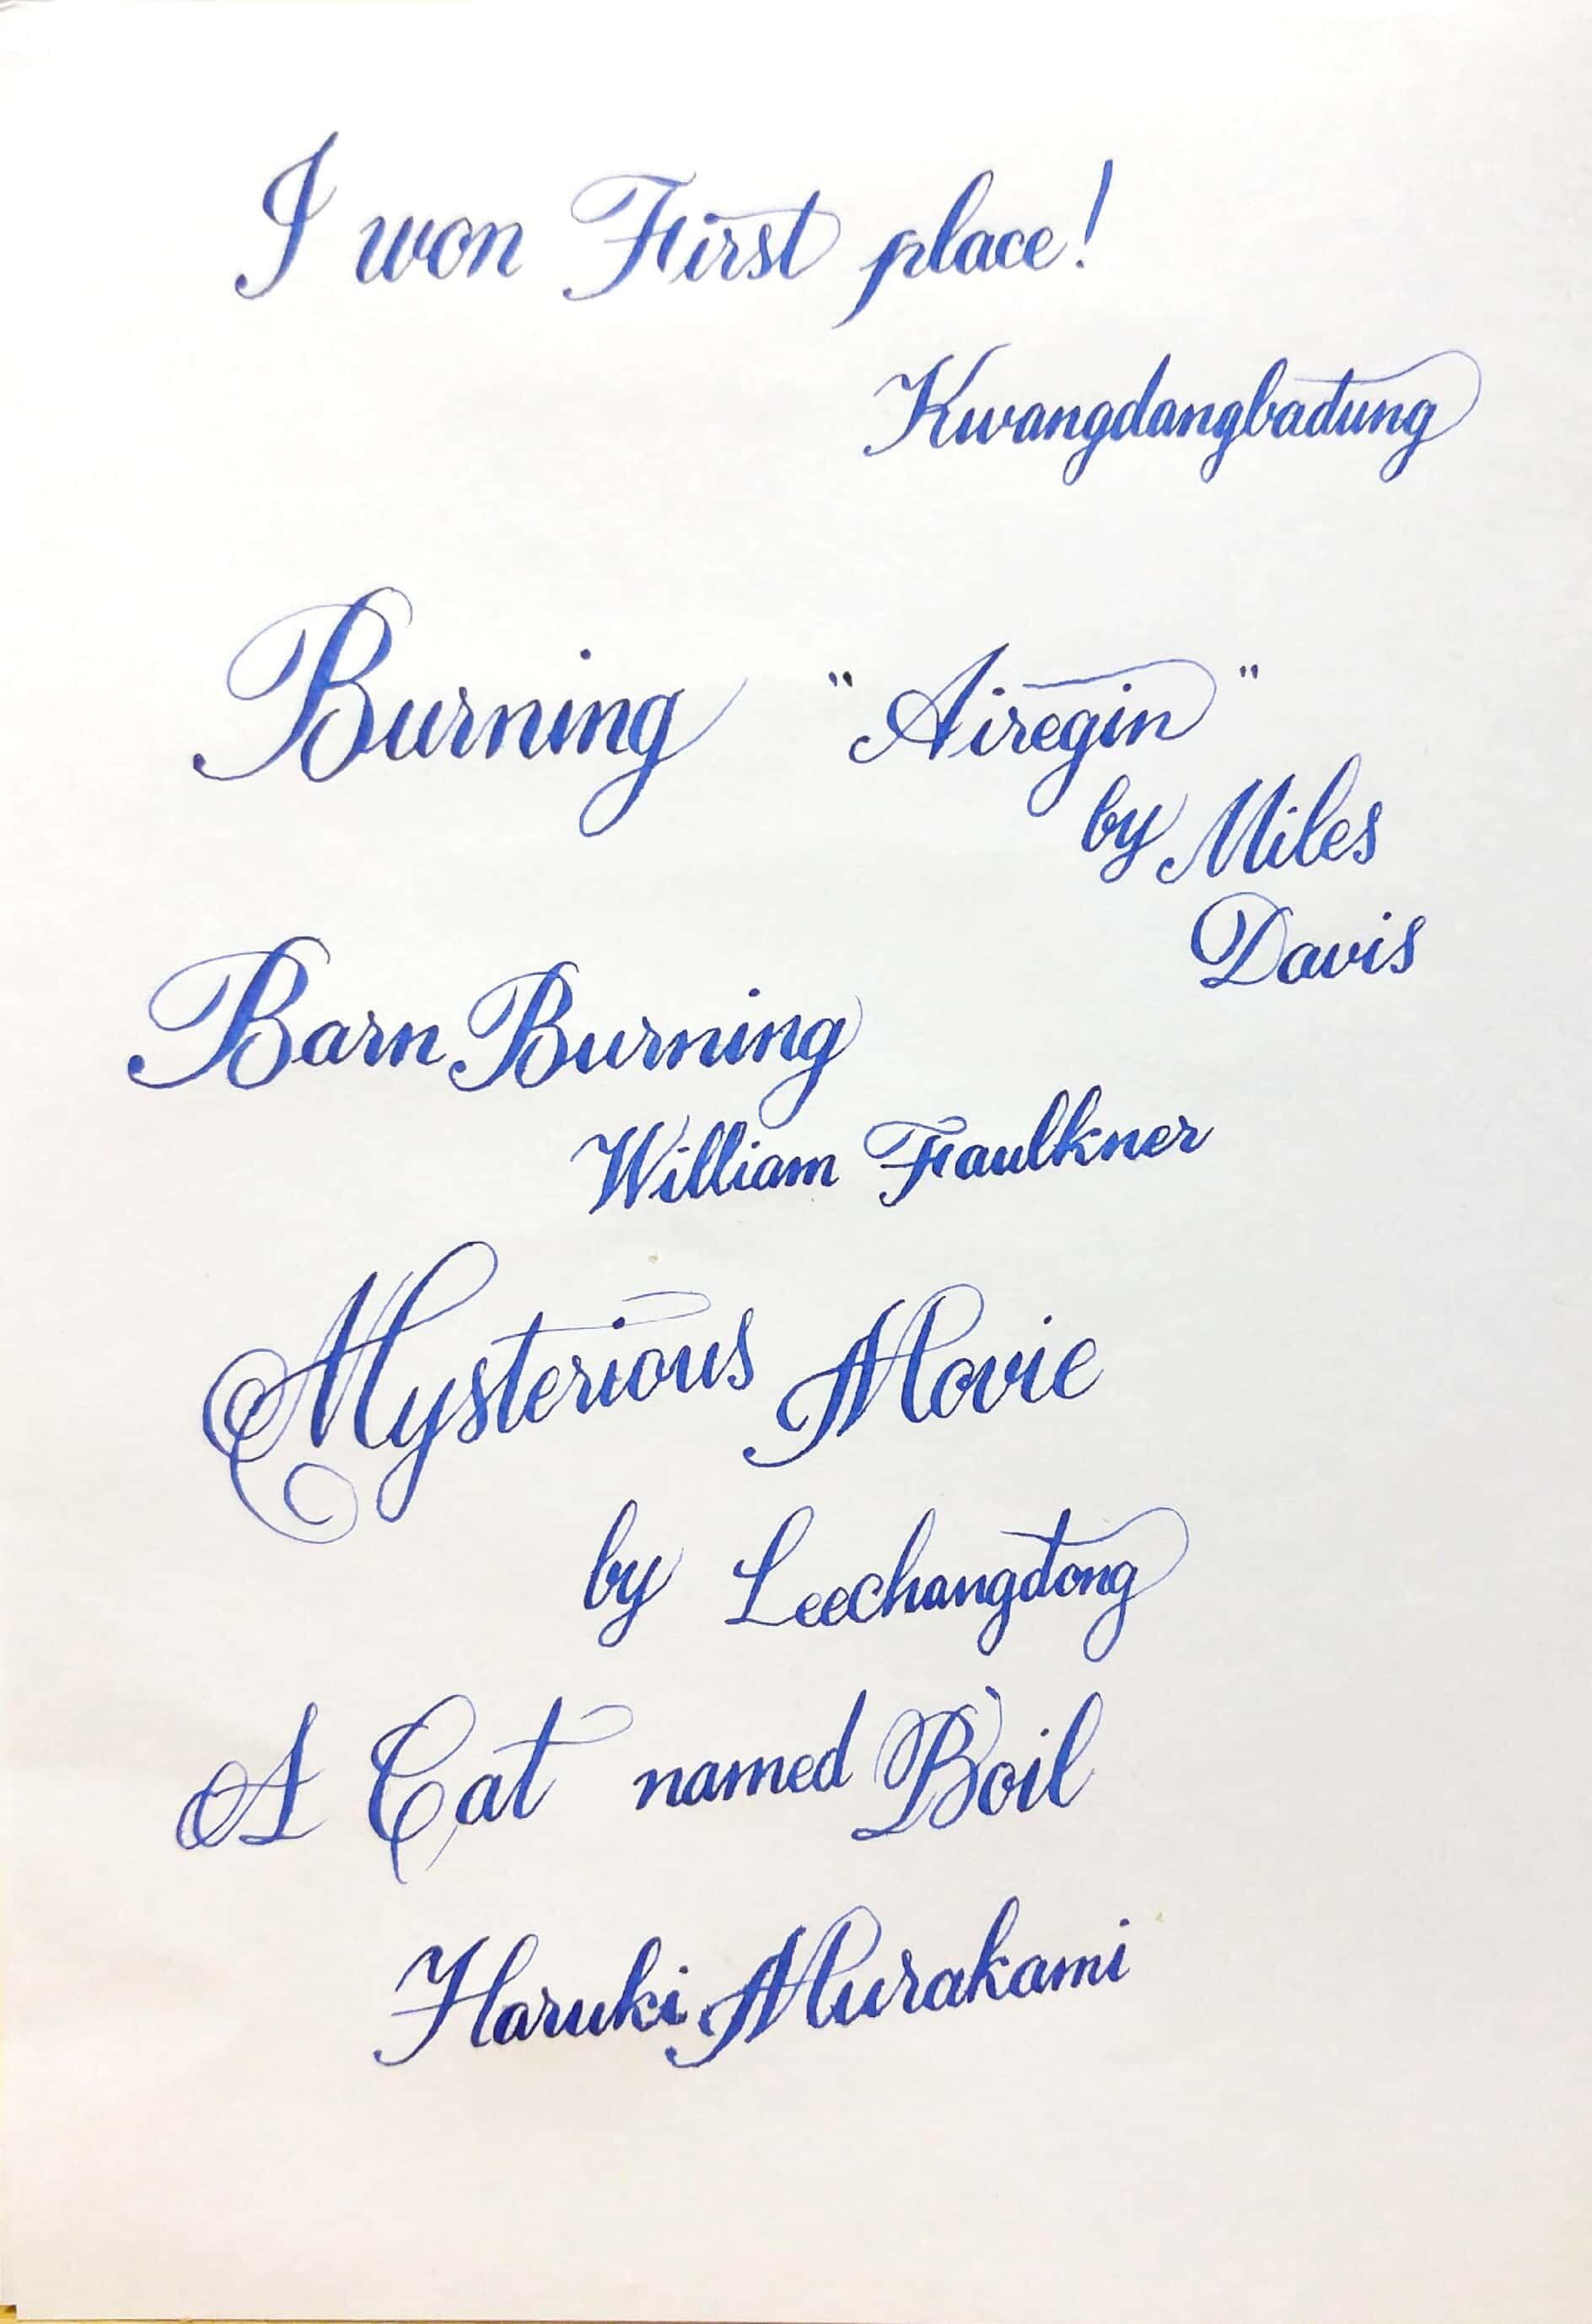 I won First place!
Kwangdangbadung
Burning "Airegin"
by Miles
Davis
Barn Burning
William Faulkner
Mysterious Movie
by Leechangdong
A Cat named Boil
Haruki Murakami